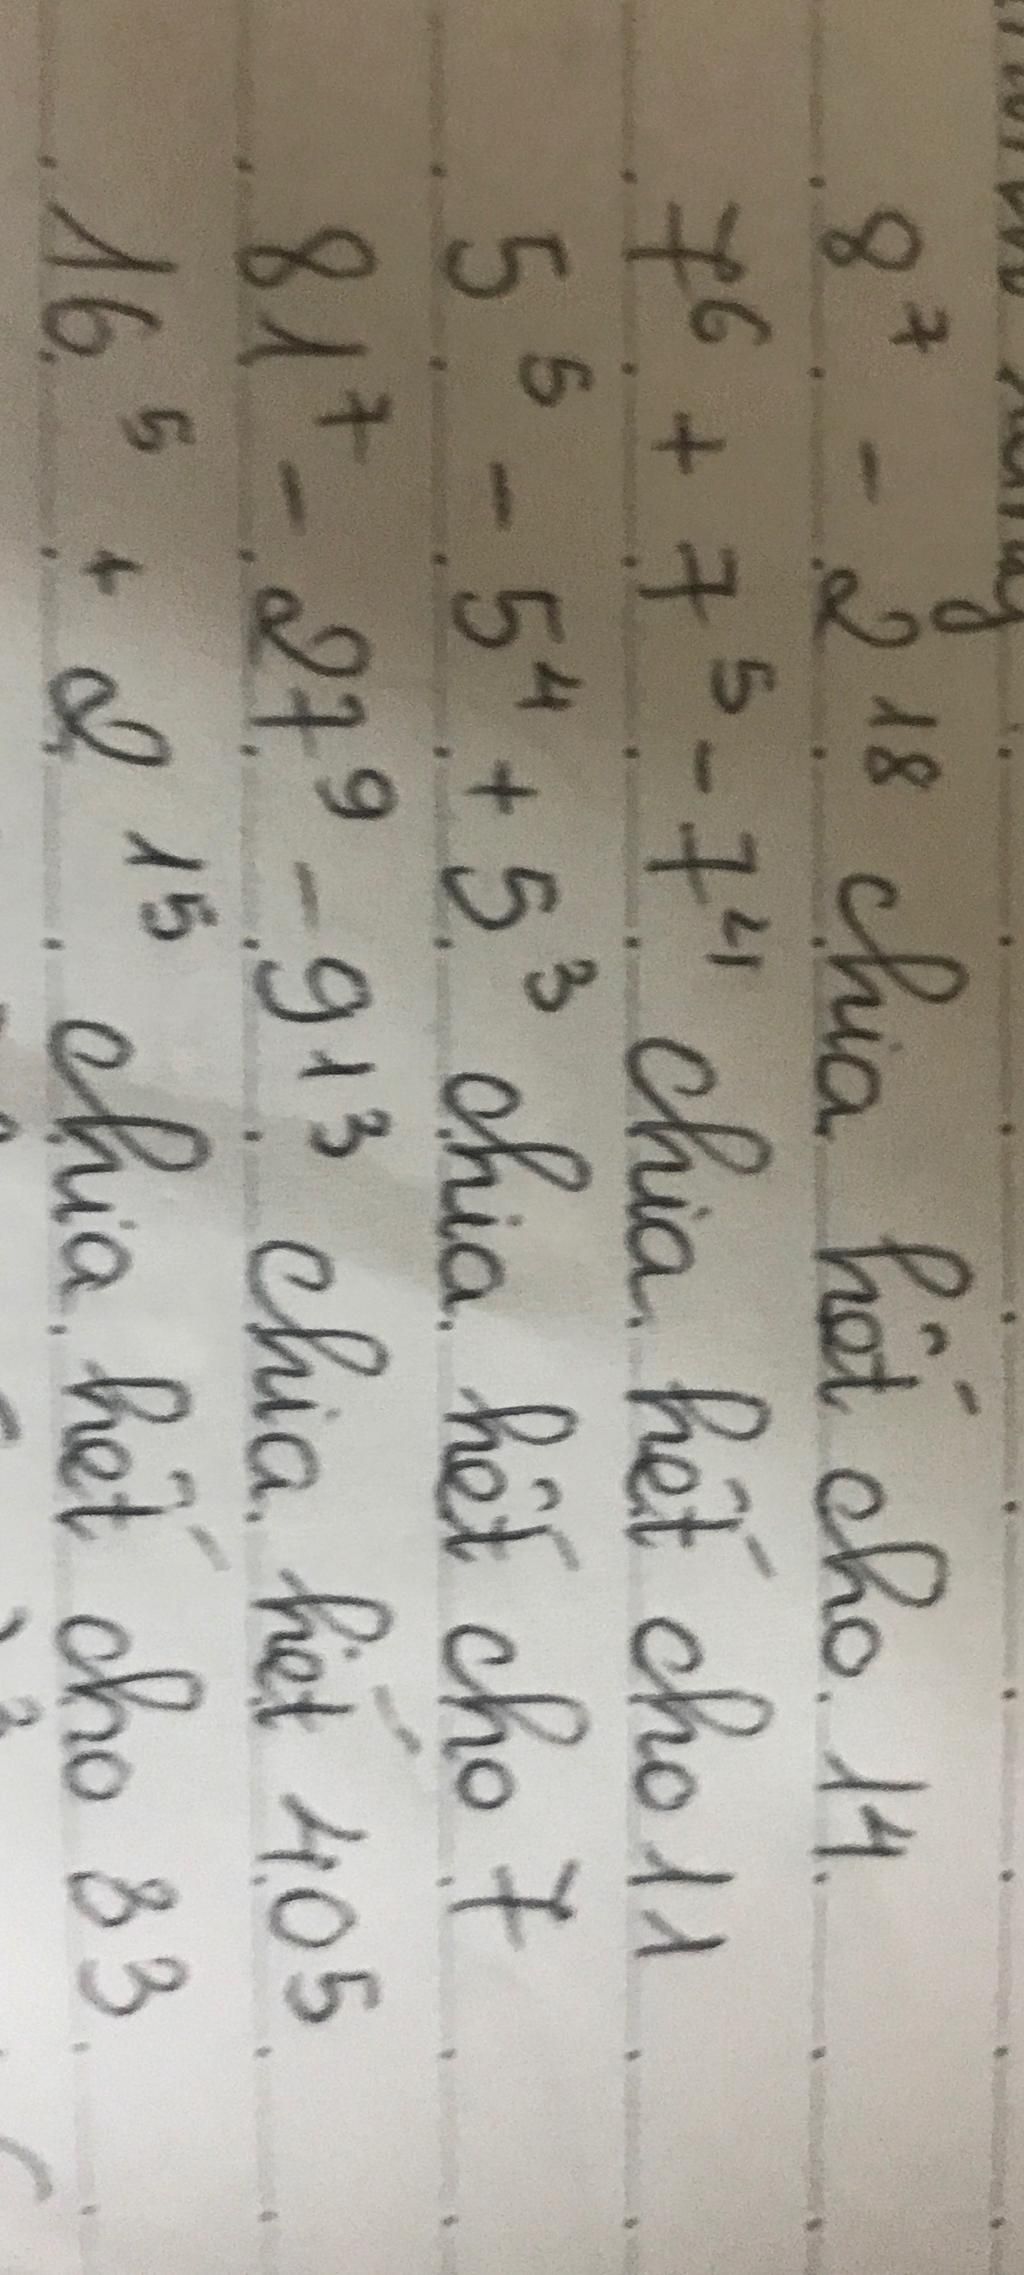 8⁷ - 2¹⁸ chia hết cho 14
7⁶ + 7⁵ - 7⁴ chia hết cho 11
5⁵ - 5⁴ + 5³ chia hết cho 7
81⁷ - 27⁹ - 9¹³ chia hết 405
16⁵ + 2¹⁵ chia hết cho 33